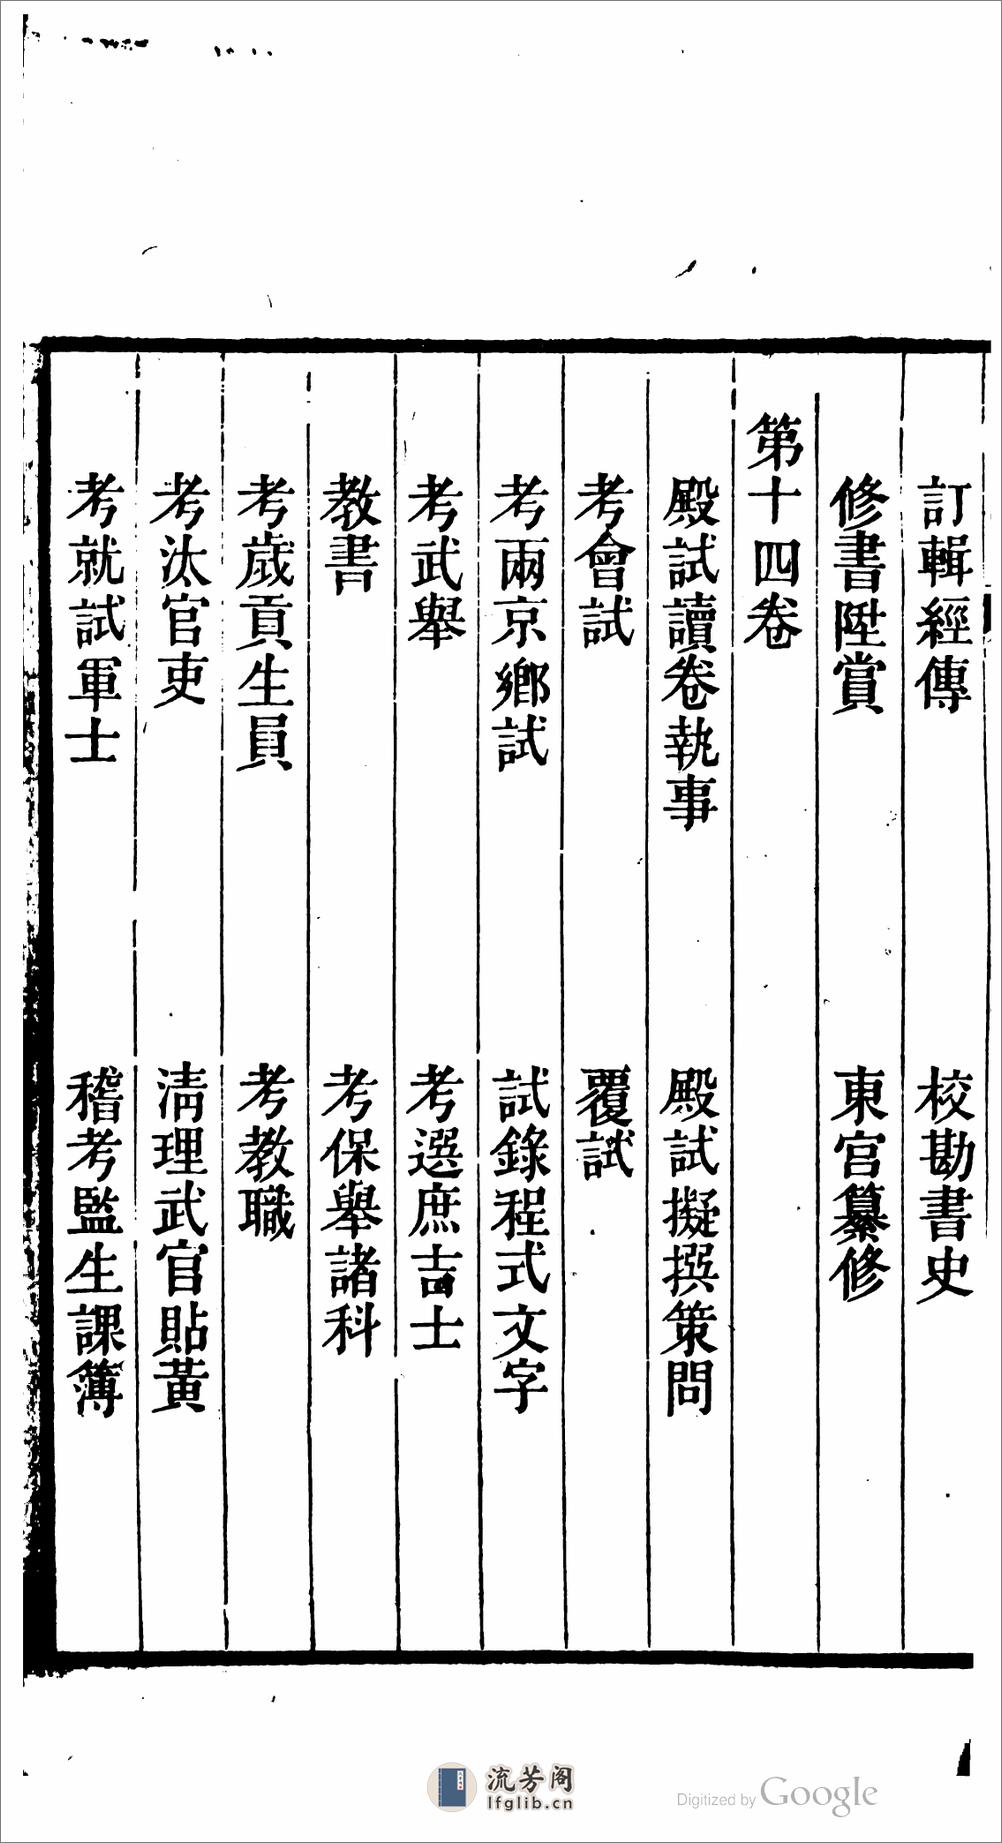 訂輯經傳　校勘書史
修書陞賞　東宮纂修
第十四卷
殿試讀卷執事　殿試擬撰策問
考會試　覆試
考兩京鄉試　試錄程式文字
考武舉　考選庶吉士
教書　考保舉諸科
考歲貢生員　考教職
考汰官吏　清理武官貼黃
考就試軍士　稽考監生課簿
流芳阁
lfglib.cn
Digitized by Google